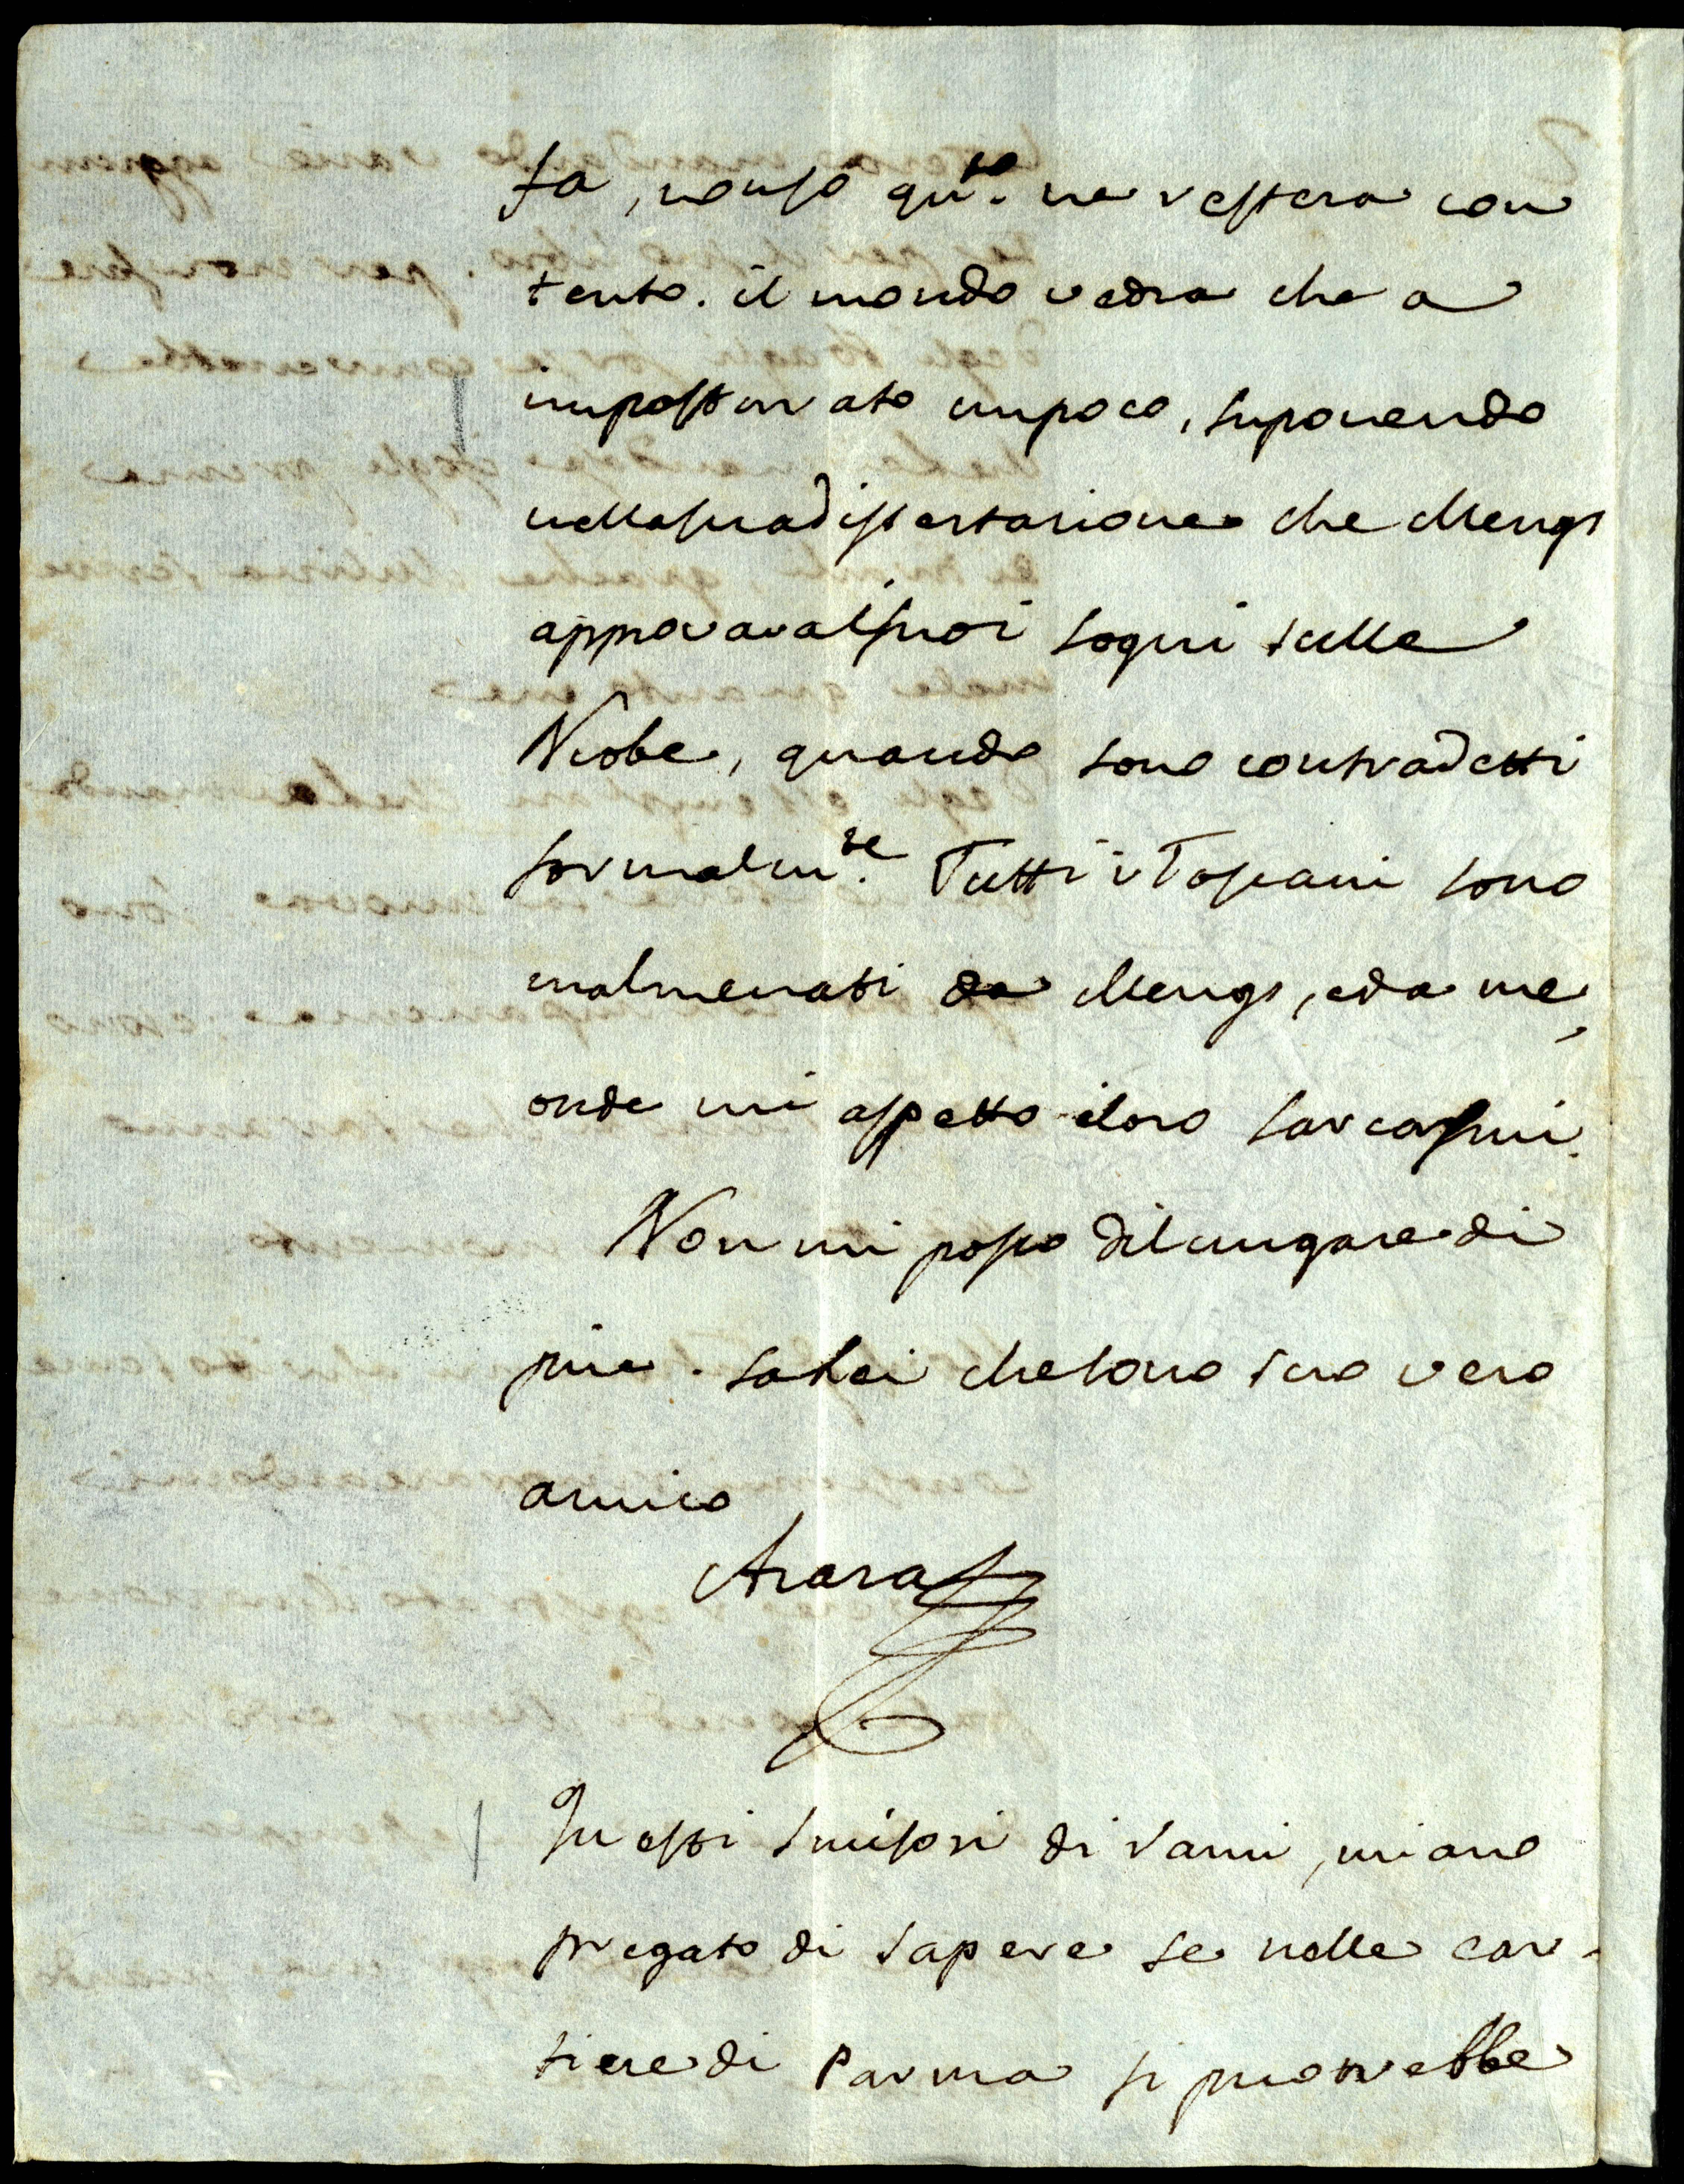 ta, nonso qu.to ne restera con
tento. il mondo vedra che a
imposturato unpoco, suponendo
nellasuadissertazione che Mengs
approvavaisuoi sogni sulle
Niobe, quando sono contradetti
formalm.te Tutti i Toscani sono
malmenati da Mengs, eda me,
onde mi aspetto iloro sarcasmi.
Non mi posso dilungaredi
piu. saLei chesono suo vero
amico
Azara
Questi Smisori di rami, miano
pregato di sapere se nelle car-
tiere di Parma si potrebbe